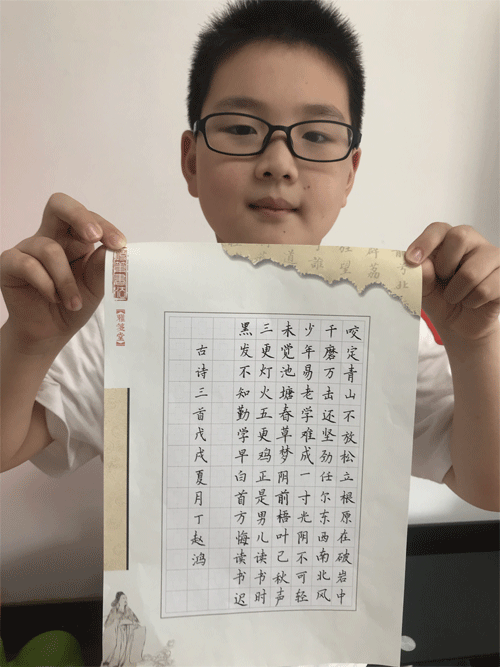 咬定青山不放松立根原在破岩中
千磨万击还坚劲任尔东西南北风
少年易老学难成一寸光阴不可轻
未觉池塘春草梦阴前梧叶已秋声
三更灯火五更鸡正是男儿读书时
黑发不知勤学早白首方悔读书迟
古诗三首戊戌夏月丁赵鸿